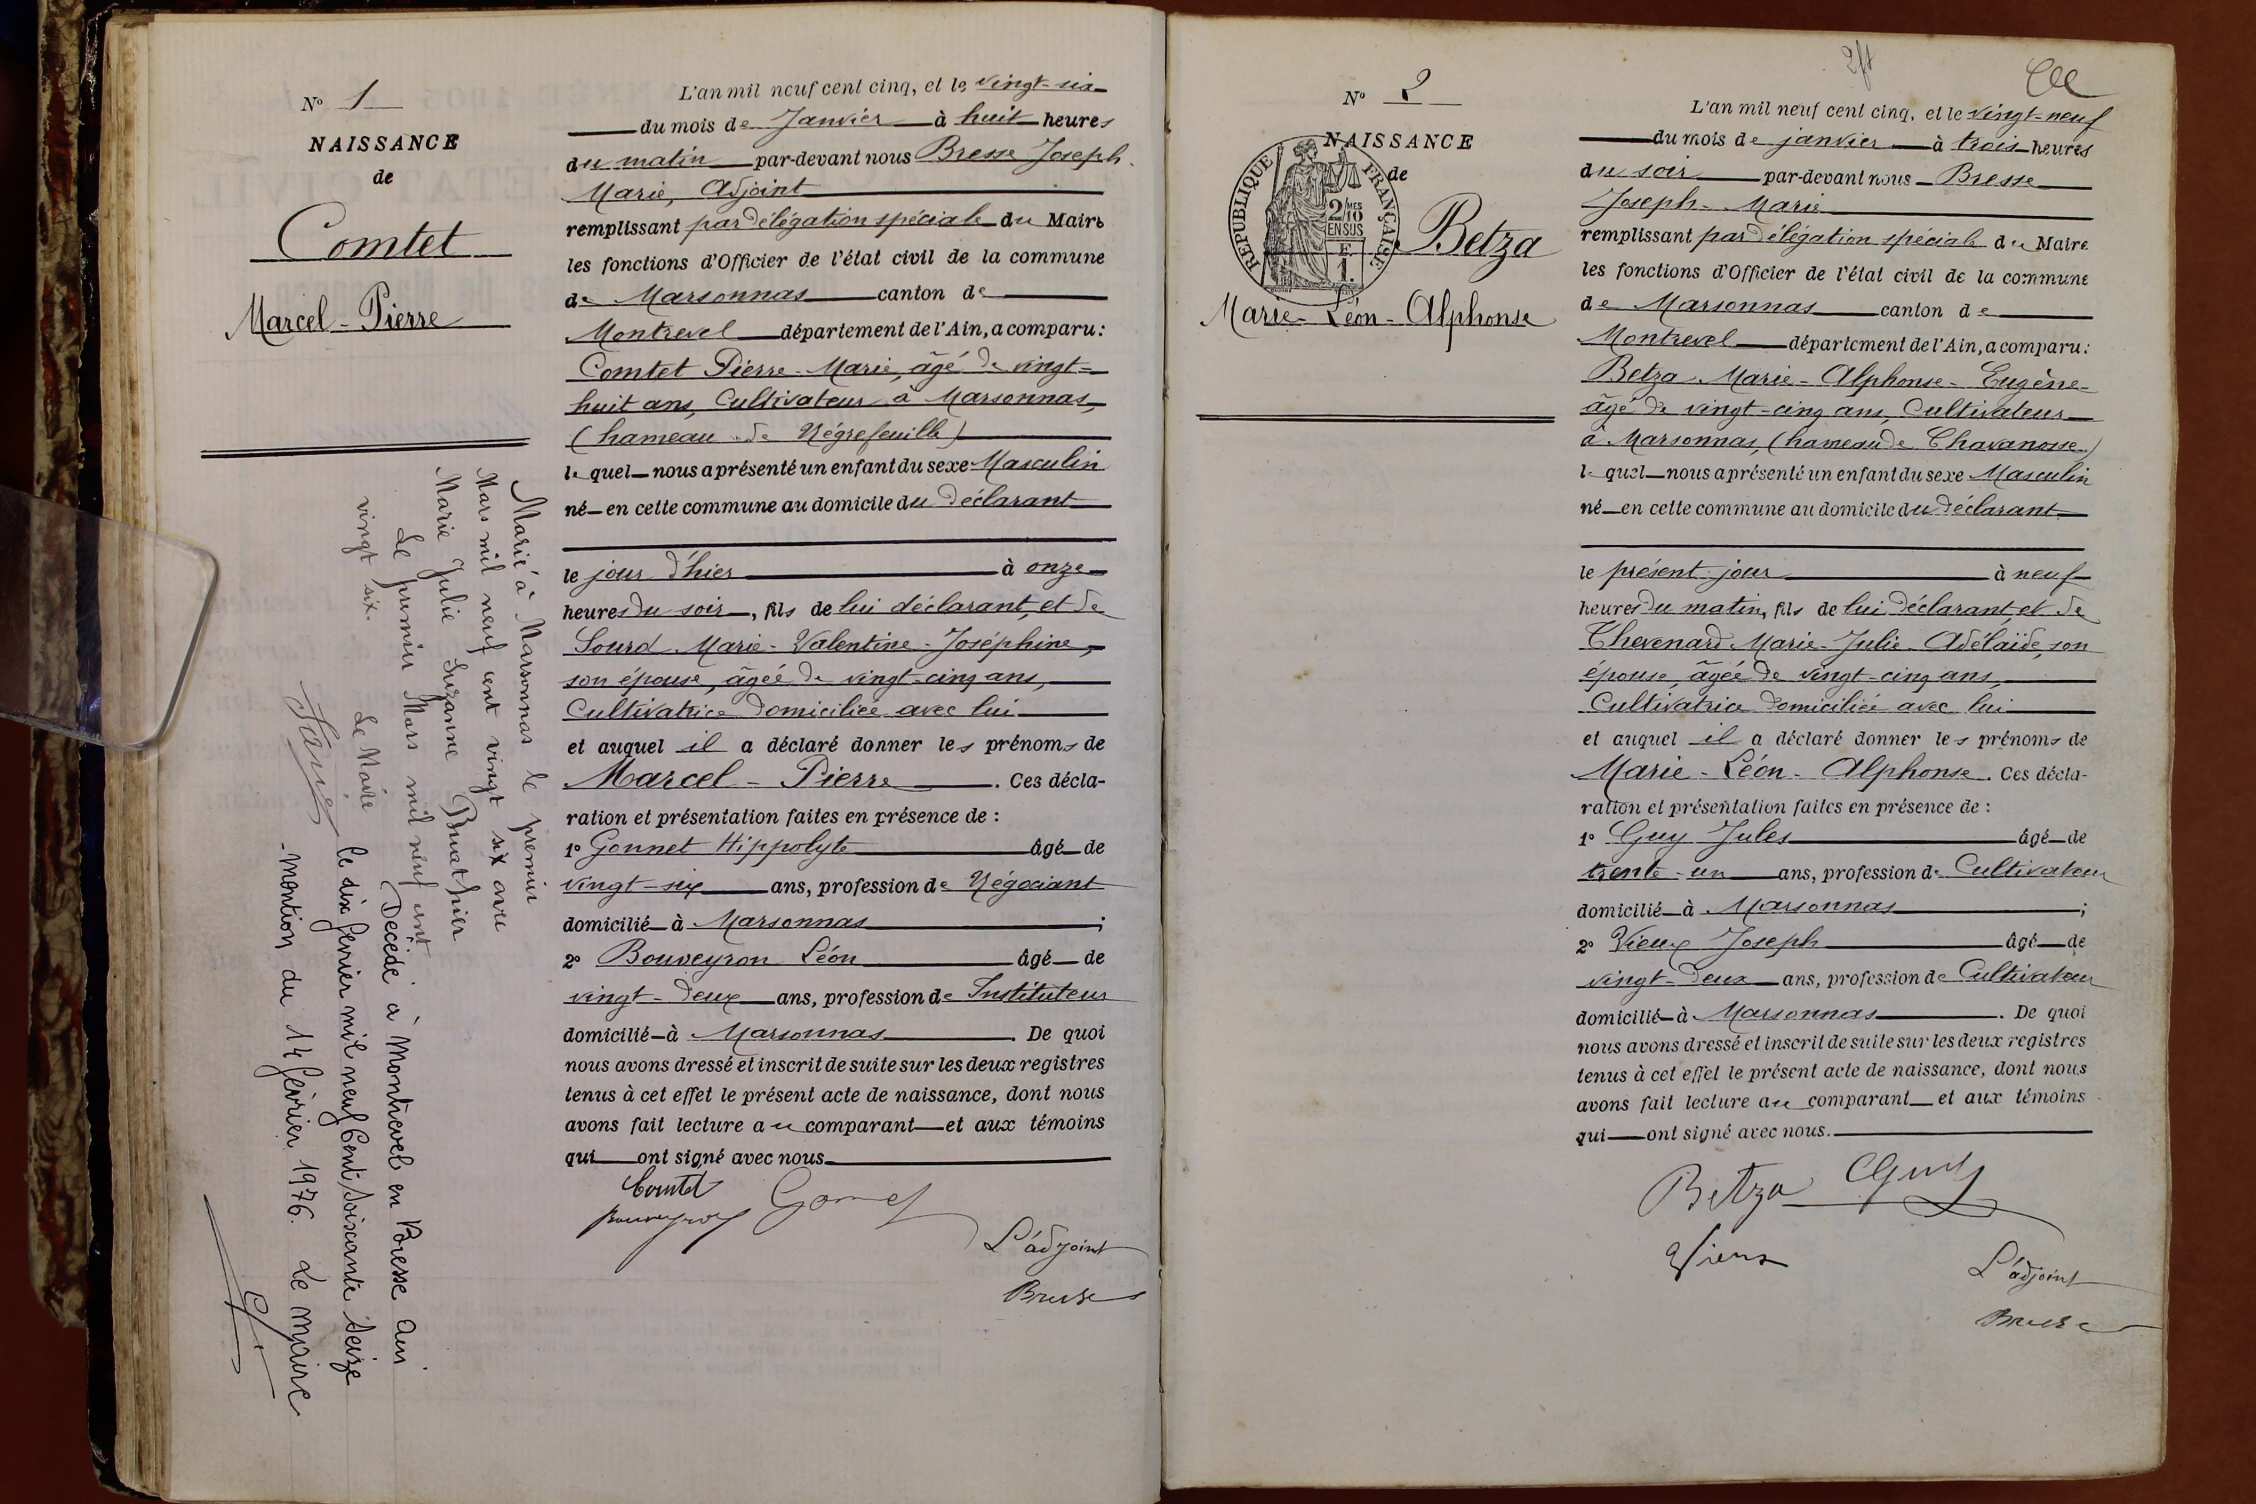 Nº 1
NAISSANCE
de
Comtet
Marcel - Pierre
L'an mil neuf cent cinq, et le vingt-six
du mois de Janvier à huit heures
du matin par-devant nous Bresse Joseph-
Marie, Adjoint
remplissant par délégation spéciale du Maire
les fonctions d'Officier de l'état civil de la commune
de Marsonnas canton de
Montrevel département de l'Ain, a comparu :
Comtet Pierre-Marie, âgé de vingt-
huit ans, Cultivateur à Marsonnas,
(hameau de Négrefeuille)
lequel nous a présenté un enfant du sexe Masculin
né en cette commune au domicile du déclarant
le jour d'hier à onze
heures du soir, fils de lui déclarant, et de
Sourd Marie-Valentine-Joséphine,
son épouse, âgée de vingt-cinq ans,
Cultivatrice domiciliée avec lui
et auquel il a déclaré donner les prénoms de
Marcel - Pierre. Ces décla-
ration et présentation faites en présence de :
1º Gonnet Hippolyte âgé de
vingt-six ans, profession de Négociant
domicilié à Marsonnas ;
2º Bouveyron Léon âgé de
vingt-deux ans, profession de Instituteur
domicilié à Marsonnas. De quoi
nous avons dressé et inscrit de suite sur les deux registres
tenus à cet effet le présent acte de naissance, dont nous
avons fait lecture au comparant et aux témoins
qui ont signé avec nous
Comtet
Bouveyron
L'adjoint
Bresse
Marié à Marsonnas le premier
Mars mil neuf cent vingt six avec
Marie Julie Suzanne Buathier
Le premier Mars mil neuf cent
vingt six.
Le Maire
Décédé à Montrevel en Bresse Ain
le dix février mil neuf Cent Soixante Seize
-Mention du 14 février 1976. Le Maire
Nº 2
NAISSANCE
de
Betza
Marie-Léon-Alphonse
REPUBLIQUE FRANÇAISE
2/MES
10
EN SUS
E.
1.
L'an mil neuf cent cinq, et le vingt-neuf
du mois de janvier à trois heures
du soir par-devant nous Bresse
Joseph-Marie
remplissant par délégation spéciale du Maire
les fonctions d'Officier de l'état civil de la commune
de Marsonnas canton de
Montrevel département de l'Ain, a comparu :
Betza Marie-Alphonse-Eugène-
âgé de vingt-cinq ans, Cultivateur
à Marsonnas, (hameau de Chavanosse)
lequel nous a présenté un enfant du sexe Masculin
né en cette commune au domicile du déclarant
le présent jour à neuf
heures du matin, fils de lui déclarant, et de
Thevenard Marie-Julie-Adélaïde, son
épouse, âgée de vingt-cinq ans,
Cultivatrice domiciliée avec lui
et auquel il a déclaré donner les prénoms de
Marie-Léon-Alphonse. Ces décla-
ration et présentation faites en présence de :
1º Guy Jules âgé de
trente-un ans, profession de Cultivateur
domicilié à Marsonnas ;
2º Vieux Joseph âgé de
vingt-deux ans, profession de Cultivateur
domicilié à Marsonnas. De quoi
nous avons dressé et inscrit de suite sur les deux registres
tenus à cet effet le présent acte de naissance, dont nous
avons fait lecture au comparant et aux témoins
qui ont signé avec nous.
Betza Guy
Vieux
L'adjoint
Bresse